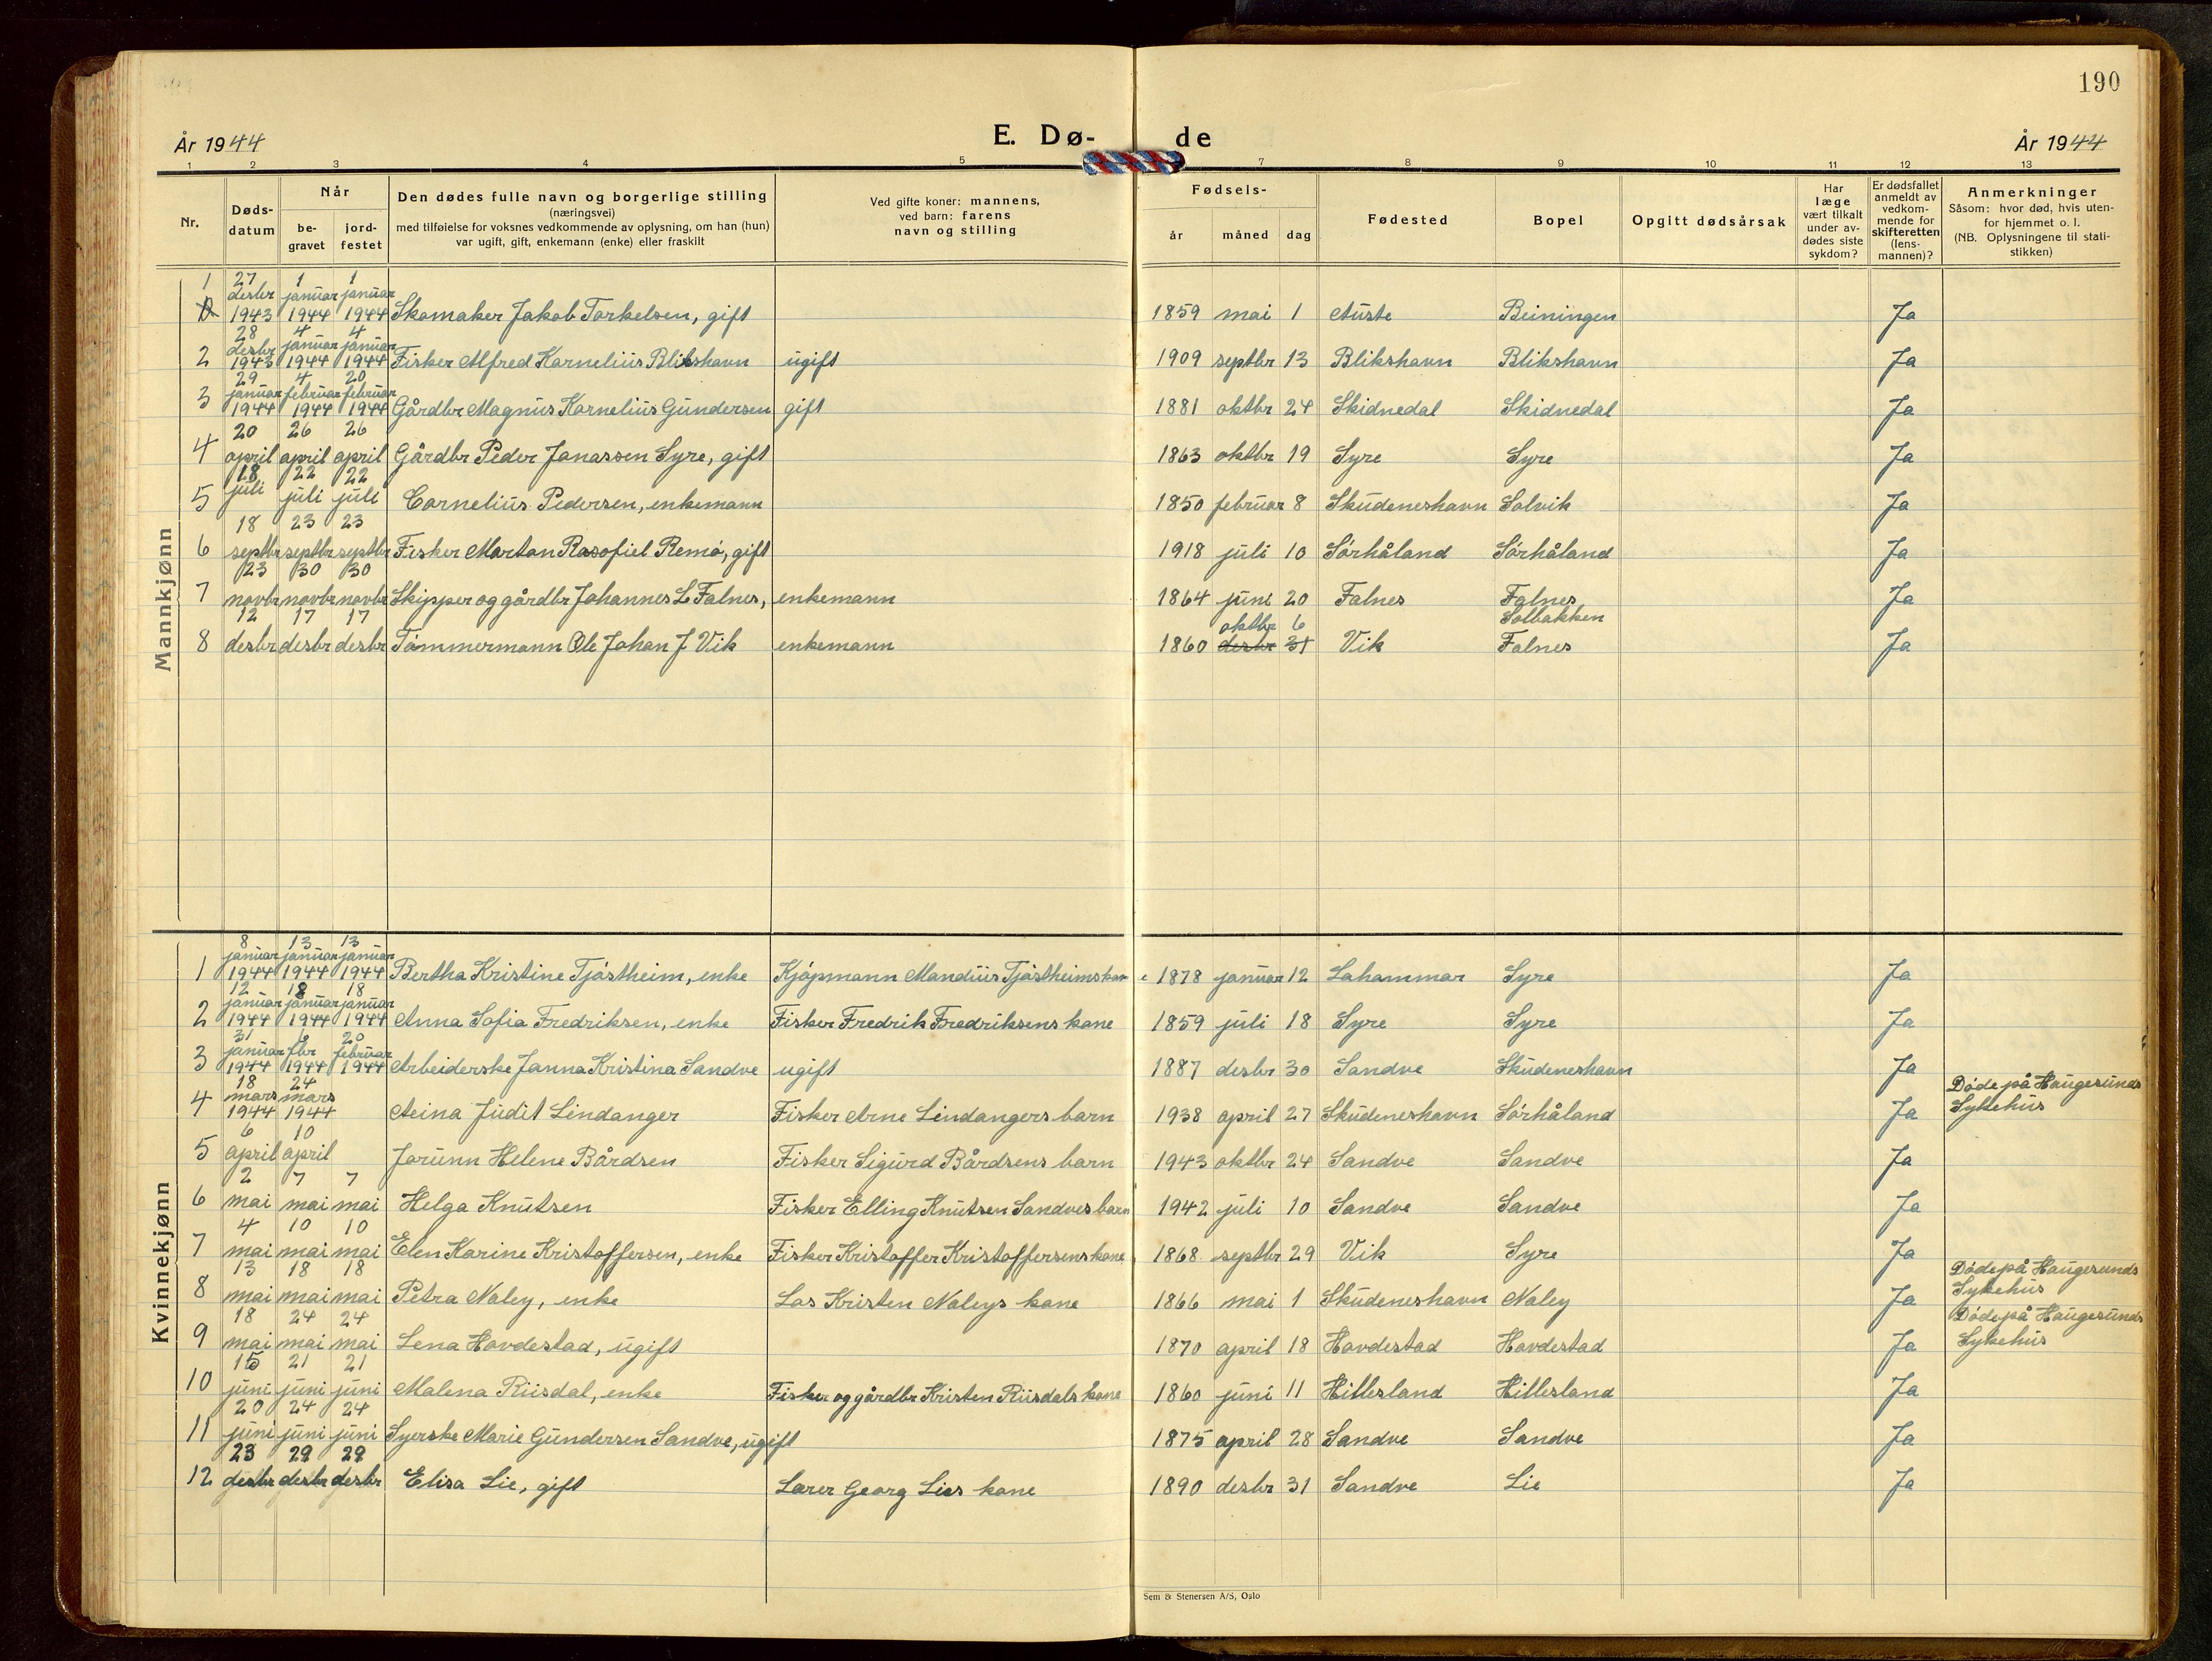 190
År 1944 E. Dø- de År 1944
1 2 3 4 5 7 8 9 10 11 12 13
Nr.
Døds-
datum
Når
be-
gravet
jord-
festet
Den dødes fulle navn og borgerlige stilling
(næringsvei)
med tilføielse for voksnes vedkommende av oplysning, om han (hun)
var ugift, gift, enkemann (enke) eller fraskilt
Ved gifte koner: mannens,
ved barn: farens
navn og stilling
Fødsels-
år måned dag
Fødested
Bopel
Opgitt dødsårsak
Har
læge
vært tilkalt
under av-
dødes siste
sykdom?
Er dødsfallet
anmeldt av
vedkom-
mende for
skifteretten
(lens-
mannen)?
Anmerkninger
Såsom: hvor død, hvis uten-
for hjemmet o. l.
(NB. Oplysningene til stati-
stikken)
Mannkjønn
1 27 desbr 1943 1 januar 1944 1 januar 1944 Skomaker Jakob Torkelsen, gift 1859 mai 1 Auste Beiningen Ja
2 28 desbr 1943 4 januar 1944 4 januar 1944 Fisker Alfred Kornelius Blikshavn ugift 1909 septbr 13 Blikshavn Blikshavn Ja
3 29 januar 1944 4 februar 1944 20 februar 1944 Gårdbr Magnus Kornelius Gundersen gift 1881 oktbr 24 Skidnedal Skidnedal Ja
4 20 april 26 april 26 april Gårdbr Peder Jonassen Syre, gift 1863 oktbr 19 Syre Syre Ja
5 18 juli 22 juli 22 juli Cornelius Pedersen, enkemann 1850 februar 8 Skudeneshavn Solvik Ja
6 18 septbr 23 septbr 23 septbr Fisker Morton Rasofiel Remø, gift 1918 juli 10 Sørhåland Sørhåland Ja
7 23 novbr 30 novbr 30 novbr Skipper og gårdbr Johannes L Falnes, enkemann 1864 juni 20 Falnes Falnes Ja
8 12 desbr 17 desbr 17 desbr Tømmermann Ole Johan J Vik enkemann 1860 oktbr 6 desbr 31 Vik Solbakken Falnes Ja
Kvinnekjønn
1 8 januar 1944 13 januar 1944 13 januar 1944 Bertha Kristine Tjøstheim, enke Kjøpmann Mandius Tjøstheims kone 1878 januar 12 Lahammar Syre Ja
2 12 januar 1944 18 januar 1944 18 januar 1944 Anna Sofia Fredriksen, enke Fisker Fredrik Fredriksens kone 1859 juli 18 Syre Syre Ja
3 31 januar 1944 fbr 1944 20 februar 1944 Arbeiderske Janna Kristina Sandve ugift 1887 desbr 30 Sandve Skudeneshavn Ja
4 18 mars 1944 24 mars 1944 Aeina Judit Lindanger Fisker Arne Lindangers barn 1938 april 27 Skudeneshavn Sørhåland Ja Døde på Haugesunds Sykehus
5 6 april 10 april Jorunn Helene Bårdsen Fisker Sigurd Bårdsens barn 1943 oktbr 24 Sandve Sandve Ja
6 2 mai 7 mai 7 mai Helga Knutsen Fisker Elling Knutsen Sandves barn 1942 juli 10 Sandve Sandve Ja
7 4 mai 10 mai 10 mai Elen Karine Kristoffersen, enke Fisker Kristoffer Kristoffersens kone 1868 septbr 29 Vik Syre Ja
8 13 mai 18 mai 18 mai Petra Naley, enke Los Kristen Naleys kone 1866 mai 1 Skudeneshavn Naley Ja Døde på Haugesunds Sykehus
9 18 mai 24 mai 24 mai Lena Hovdestad, ugift 1870 april 18 Hovdestad Hovdestad Ja Døde på Haugesunds Sykehus
10 15 juni 21 juni 21 juni Malena Riisdal, enke Fisker og gårdbr Kristen Riisdals kone 1860 juni 11 Hillesland Hillesland Ja
11 20 juni 24 juni 24 juni Syerske Marie Gundersen Sandve, ugift 1875 april 28 Sandve Sandve Ja
12 23 desbr 29 desbr 29 desbr Elisa Lie, gift Lærer Georg Lies kone 1890 desbr 31 Sandve Lie Ja
Sem & Stenersen A/S, Oslo